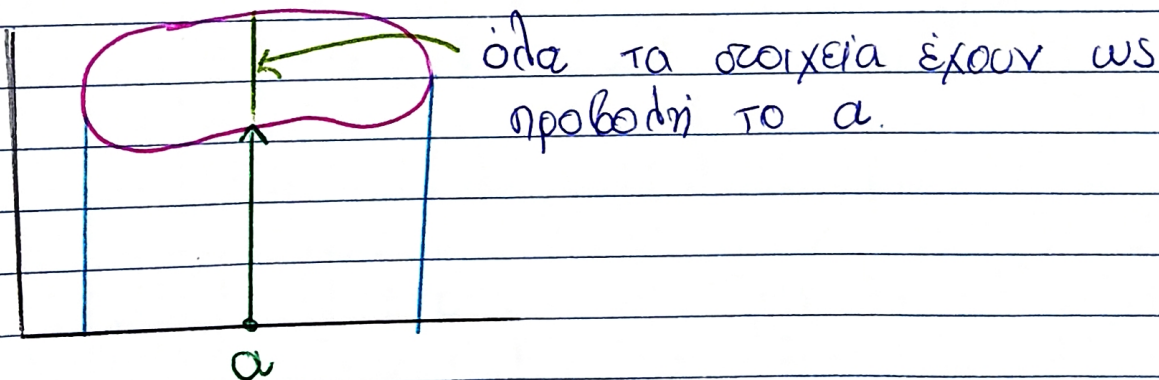 όλα τα στοιχεία έχουν ως
προβολή το α.
α